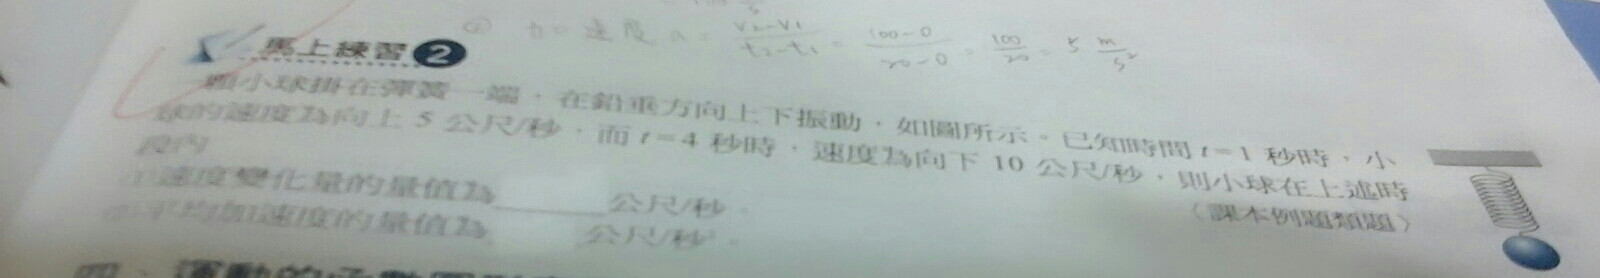 ② 加速度 a = v₂-v₁/t₂-t₁ = 100-0/20-0 = 100/20 = 5 m/s²
馬上練習 2
一顆小球掛在彈簧一端，在鉛垂方向上下振動，如圖所示。已知時間 t=1 秒時，小
球的速度為向上 5 公尺/秒，而 t=4 秒時，速度為向下 10 公尺/秒，則小球在上述時
段內
〈課本例題類題〉
①速度變化量的量值為______公尺/秒。
②平均加速度的量值為 公尺/秒²。
四、運動的函數圖